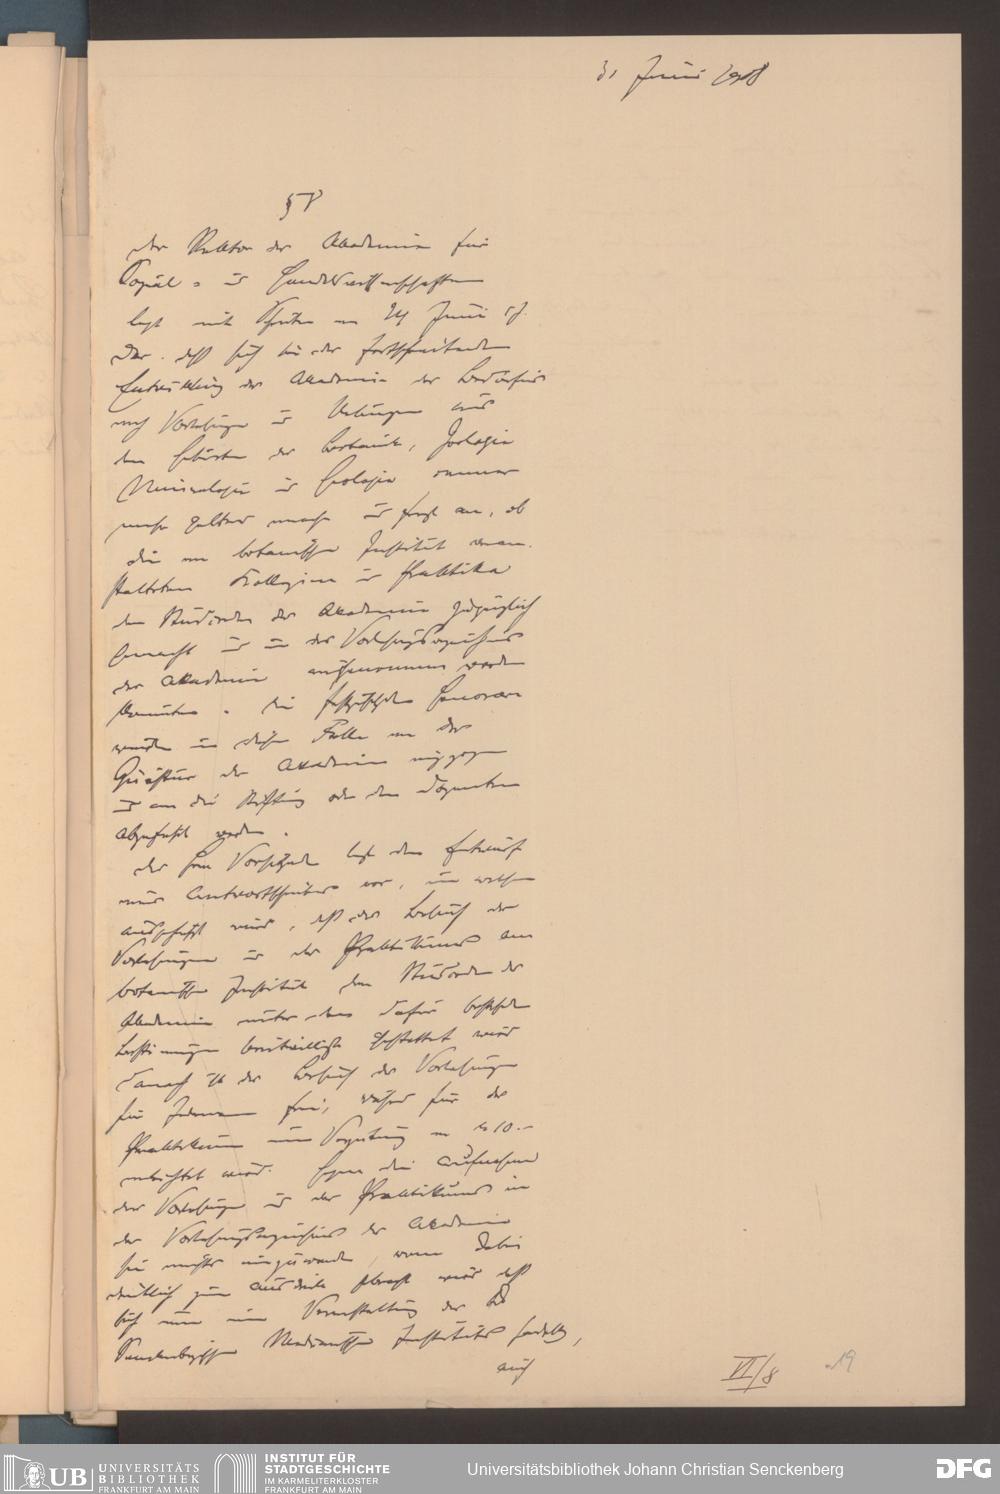 Juni 1908
§ 8
Der Rektor der Akademie für
Sozial- u Handelswissenschaften
legt mit Schreiben vom 24 Juni cj.
dar, daß sich bei der fortschreitenden
Entwicklung der Akademie das Bedürfnis
nach Vorlesungen u Uebungen aus
den Gebieten der Botanik, Zoologie
Mineralogie u Geologie immer
mehr geltend mache u fragt an, ob
die im botanischen Institut veran-
stalteten Kollegien u Praktika
den Studierenden der Akademie zugänglich
gemacht u in das Vorlesungsverzeichnis
der Akademie aufgenommen werden
könnten. Die Honorare
würden in diesem Falle von der
Quästur der Akademie eingezogen
u an die Stiftung oder den Dozenten
abgeführt werden.
Der Herr Vorsitzende legt den Entwurf
eines Antwortschreibens vor, in welchem
ausgeführt wird, daß der Besuch der
Vorlesungen u des Praktikums am
botanischen Institut den Studierenden der
Akademie unter den dafür bestehenden
Bestimmungen bereitwilligst gestattet wird
Danach ist der Besuch der Vorlesungen
für Jedermann frei, während für das
Praktikum eine Vergütung von M 10.-
entrichtet wird. Gegen die Aufnahme
der Vorlesungen u des Praktikums in
das Vorlesungsverzeichnis der Akademie
sei nichts einzuwenden, wenn dabei
deutlich zum Ausdruck gebracht wird daß
es sich um eine Veranstaltung der Dr
Senckenbergischen Medicinischen Instituts handelt,
auch
VI/8
19
UB UNIVERSITÄTS
BIBLIOTHEK
FRANKFURT AM MAIN
INSTITUT FÜR
STADTGESCHICHTE
IM KARMELITERKLOSTER
FRANKFURT AM MAIN
Universitätsbibliothek Johann Christian Senckenberg
DFG